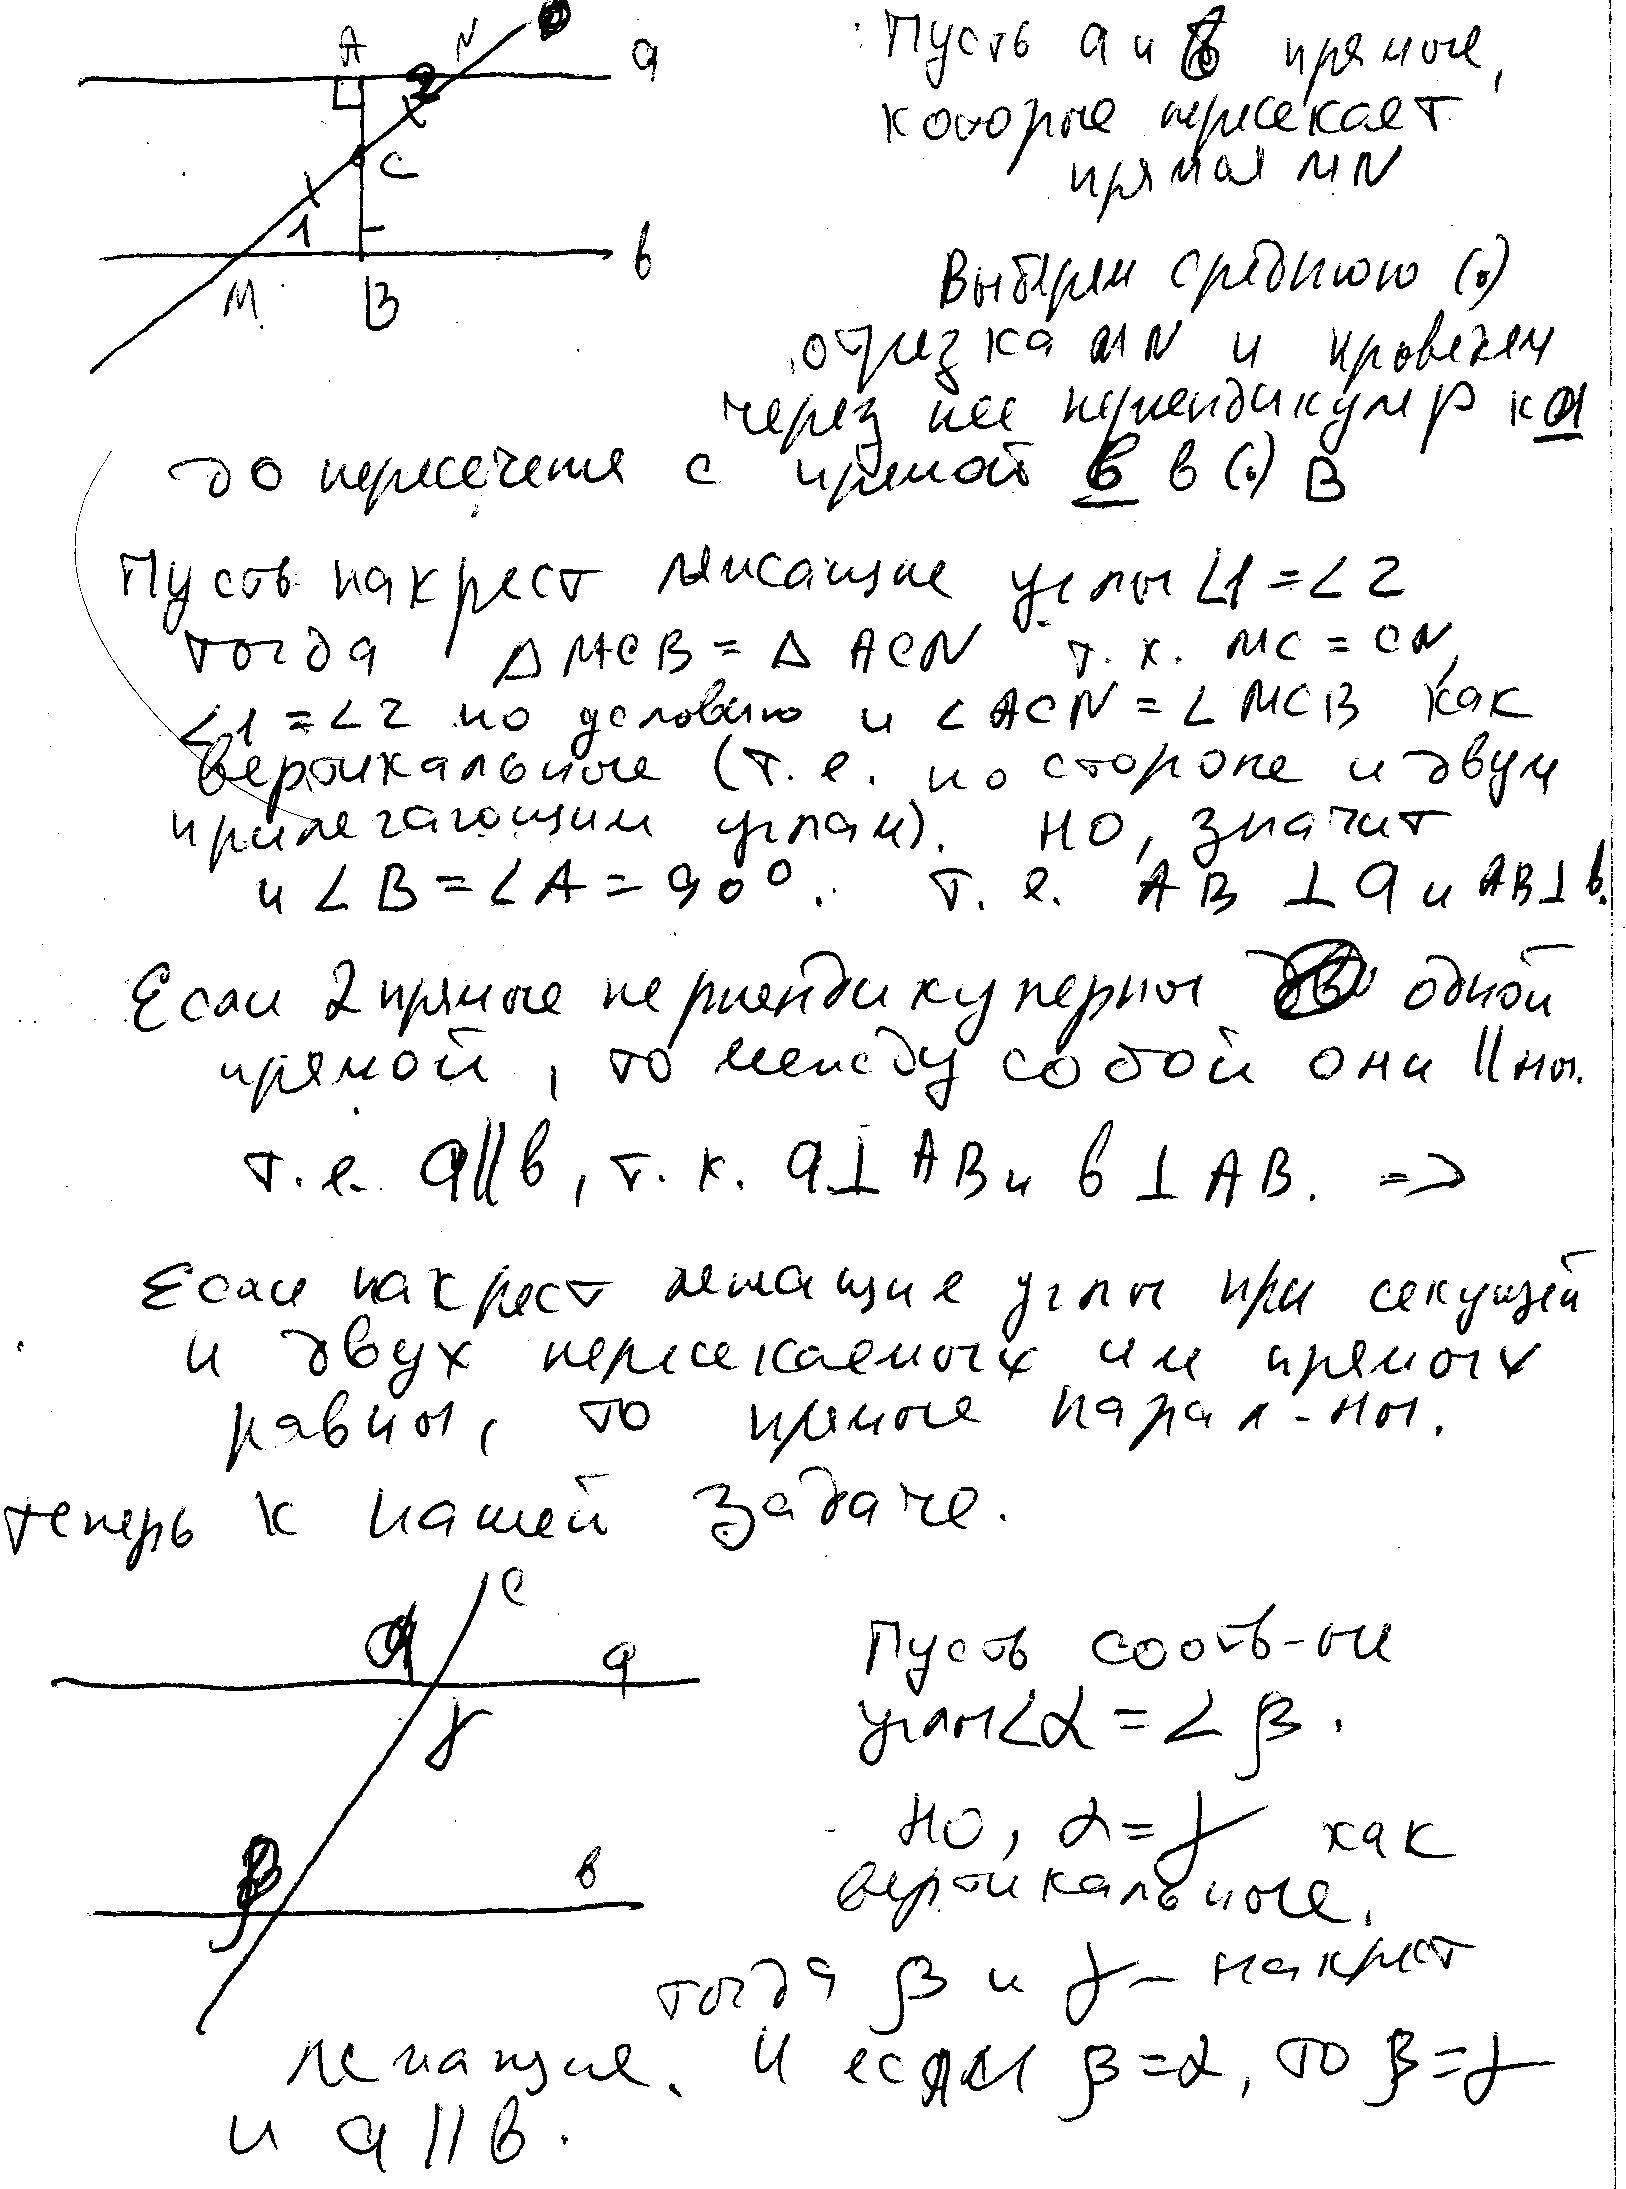 A N a
2
C
1
M B b
Пусть а и б прямые,
которые пересекает
прямая MN
Выберем среднюю (·)
отрезка MN и проведем
через нее перпендикуляр к a
до пересечения с прямой в в (·) B
Пусть накрест лежащие углы ∠1 = ∠2
тогда △ MCB = △ ACN т. к. MC = CN,
∠1 = ∠2 по условию и ∠ ACN = ∠ MCB как
вертикальные (т. е. по стороне и двум
прилегающим углам). Но, значит
и ∠ B = ∠ A = 90°. т. е. AB ⊥ a и AB ⊥ b.
Если 2 прямые перпендикулярны одной
прямой, то между собой они ||ны.
т. е. a || b, т. к. a ⊥ AB и b ⊥ AB. =>
Если накрест лежащие углы при секущей
и двух пересекаемых ими прямых
равны, то прямые парал-ны.
теперь к нашей задаче.
c
α a
γ
β b
Пусть соотв-ые
углы ∠α = ∠β.
Но, α = γ как
вертикальные,
тогда β и γ – накрест
лежащие. И если β = α, то β = γ
и a || b.